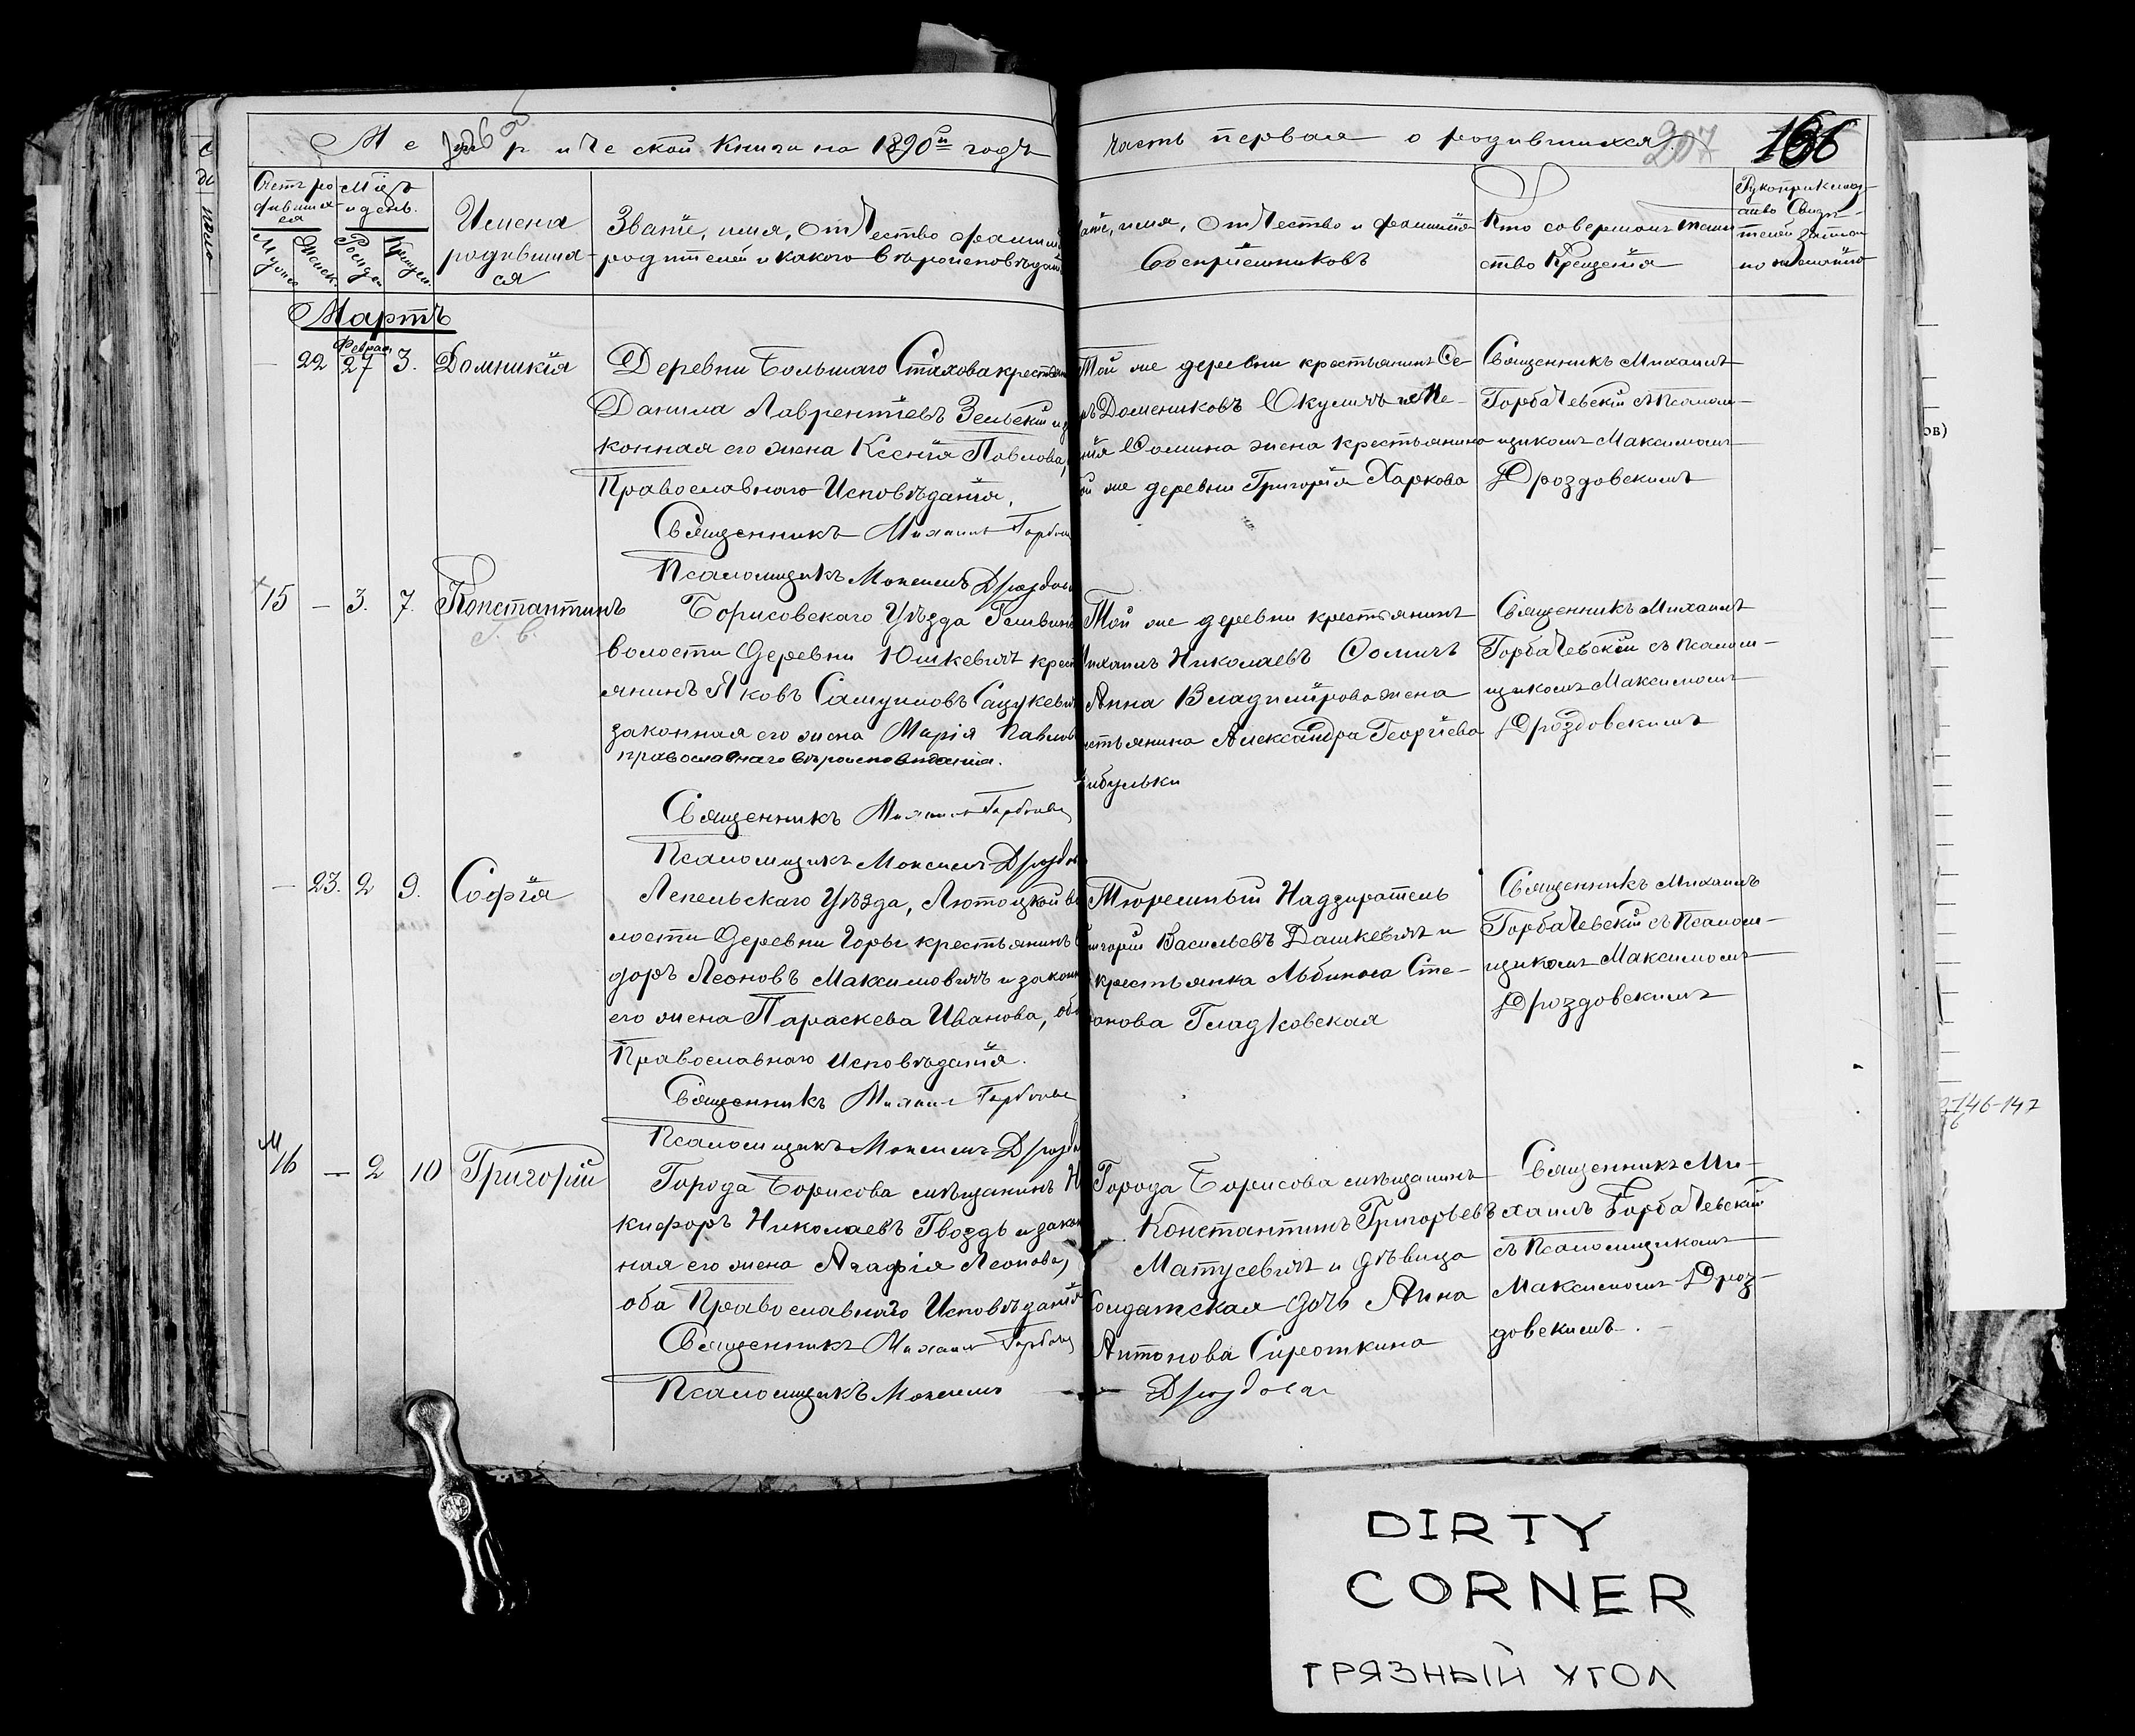 Метрической книги на 1890й годъ
часть первая о родившихся.
207 166
Счетъ ро-
дивших-
ся
Мужск.
Женск.
Мѣс.
и день.
Рожден.
Крещен.
Имена
родивших-
ся
Званіе, имя, отчество фамилія
родителей и какого вѣроисповѣдан
аніе, имя, отчество и фамилія
Воспріемниковъ
Кто совершалъ таин
ство Крещенія
Рукоприклад-
ство Свидѣ-
телей записи
по желанію
Мартъ
Феврал.
— 22 27 3. Домникія
Деревни Большаго Стахова крестьян
Данила Лаврентіевъ Зельскій и за
конная его жена Ксенія Павлова,
Православнаго Исповѣданія.
Священникъ Михаилъ Горбач
Псаломщикъ Максимъ Дроздов
Той же деревни крестьянинъ Ѳе-
ръ Домениковъ Окуличъ и Ме-
нія Ѳомина жена крестьянина
ой же деревни Григорія Харкова
Священникъ Михаилъ
Горбачевскій съ Псалом-
щикомъ Максимомъ
Дроздовскимъ
15 — 3. 7. Константинъ
Борисовскаго Уѣзда Гливин
волости Деревни Юшкевичъ крест
янинъ Яковъ Самуиловъ Сацукевич
законная его жена Марія Павлов
православнаго вѣроисповѣданія.
Священникъ Михаилъ Горбачев
Псаломщикъ Максимъ Дроздов
Той же деревни крестьянинъ
ихаилъ Николаевъ Ѳомичъ
Анна Владимірова жена
стьянина Александра Георгіева
ибульки
Священникъ Михаилъ
Горбачевскій съ Псалом-
щикомъ Максимомъ
Дроздовскимъ
— 23. 2 9. Софія
Лепельскаго Уѣзда, Лютоцкой во
лости Деревни Горы крестьянинъ
доръ Леоновъ Максимовичъ и закон
его жена Параскева Иванова, оба
Православнаго Исповѣданія.
Священникъ Михаилъ Горбачев
Псаломщикъ Максимъ Дрозд
Тюремный Надзиратель
игорій Васильевъ Дашкевичъ и
крестьянка Альбина Сте-
фанова Гладковская
Священникъ Михаилъ
Горбачевскій съ Псалом-
щикомъ Максимомъ
Дроздовскимъ
16 — 2 10 Григорій
Города Борисова мѣщанинъ Н
кифоръ Николаевъ Гвоздь и закон
ная его жена Агафія Леонова,
оба Православнаго Исповѣданія
Священникъ Михаилъ Горбачев
Псаломщикъ Максимъ Дроздовск
Города Борисова мѣщанинъ
Константинъ Григорьевъ
Матусевичъ и дѣвица
Солдатская дочь Анна
Антонова Сироткина
Священникъ Ми-
хаилъ Горбачевскій
съ Псаломщикомъ
Максимомъ Дроз-
довскимъ.
ов)
146-147
DIRTY
CORNER
ГРЯЗНЫЙ УГОЛ